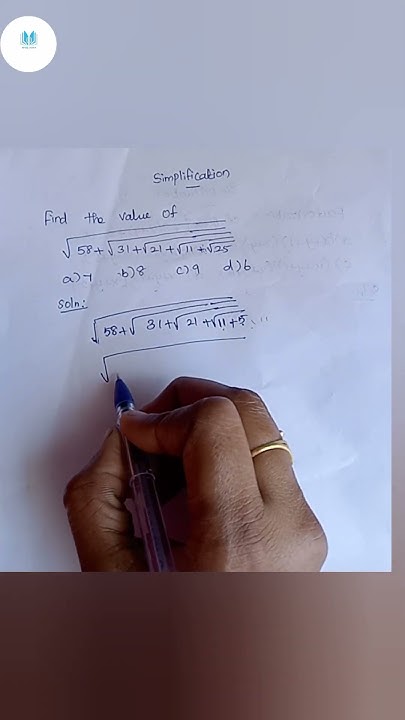 Simplification
Find the value of
√58+√31+√21+√11+√25
a) 7 b) 8 c) 9 d) 6
Soln:
√58+√31+√21+√11+5
√